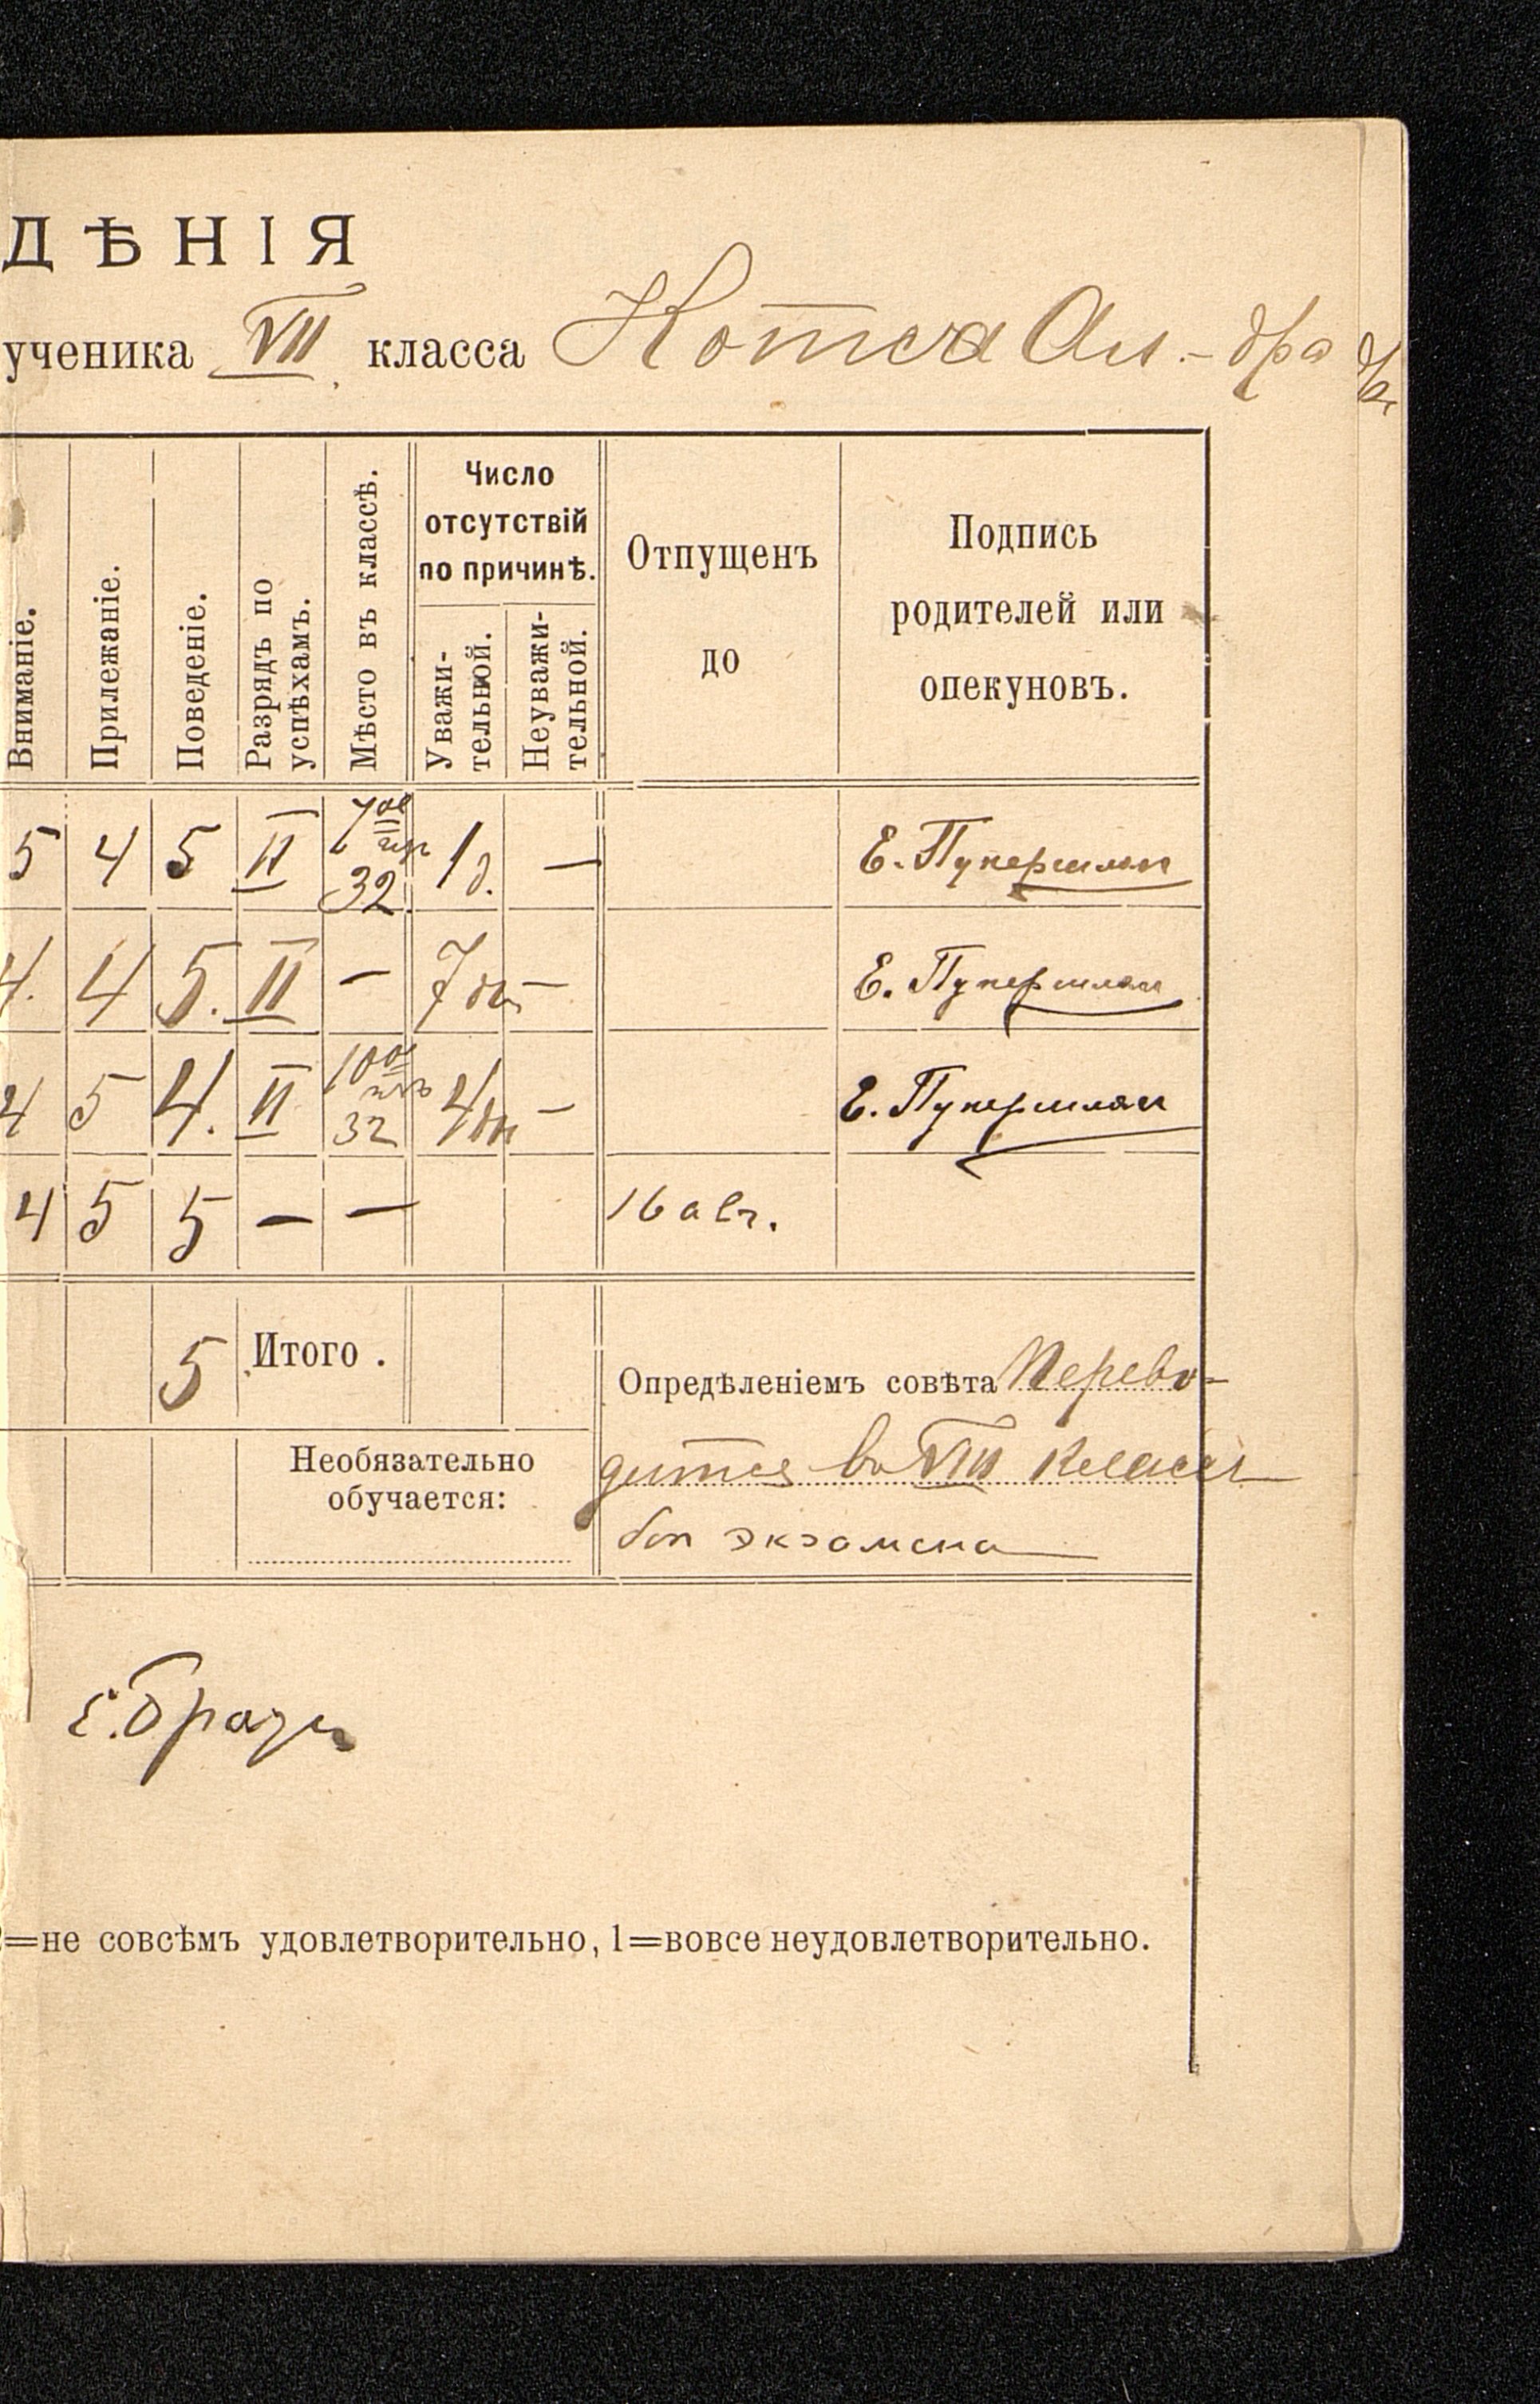 ДѢНІЯ
ученика VII класса Котса Ал.-дра
Вниманіе. Прилежаніе. Поведеніе. Разрядъ по успѣхамъ. Мѣсто въ классѣ. Число отсутствій по причинѣ. Уважи-тельной. Неуважи-тельной. Отпущенъ до Подпись родителей или опекуновъ.
5 4 5 II 7ое изъ 32. 1 д. —
4. 4 5. II — 7 дн —
4 5 4. II 10ое изъ 32 4 дн —
4 5 5 — — 16 авг.
5 Итого .
Опредѣленіемъ совѣта Перево-
дится въ VIII классъ
без экзамена
Необязательно
обучается:
=не совсѣмъ удовлетворительно, 1=вовсе неудовлетворительно.